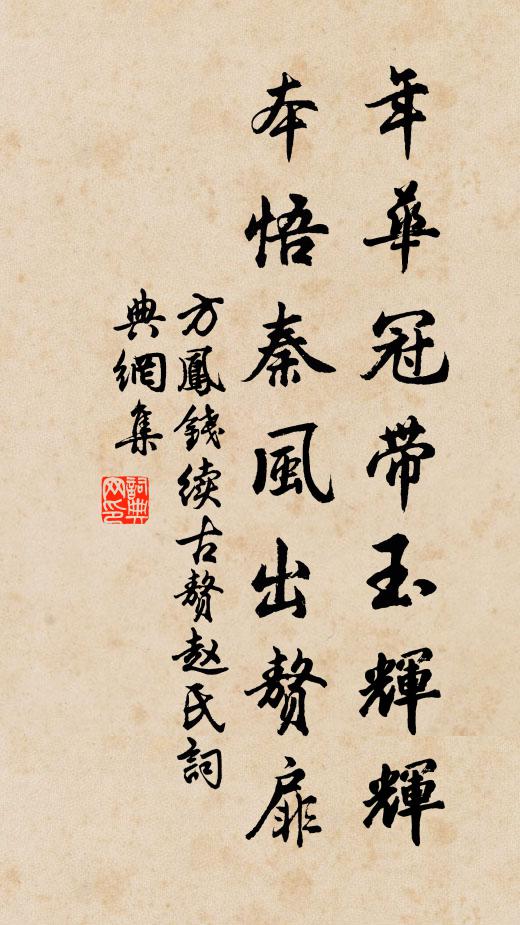 年華冠帶玉輝輝
本悟秦風出贅扉
方鳳錢续古贅赵氏詞
典網集
詞典網印